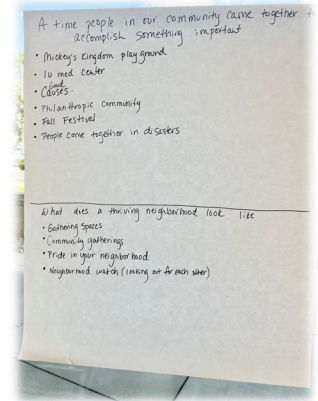 A time people in our community came together to
accomplish something important
• Mickey's Kingdom playground
• IU med center
• Good Causes
• Philanthropic community
• Fall Festival
• People come together in disasters
What does a thriving neighborhood look like
• Gathering Spaces
• Community gatherings
• Pride in your neighborhood
• Neighborhood watch (looking out for each other)